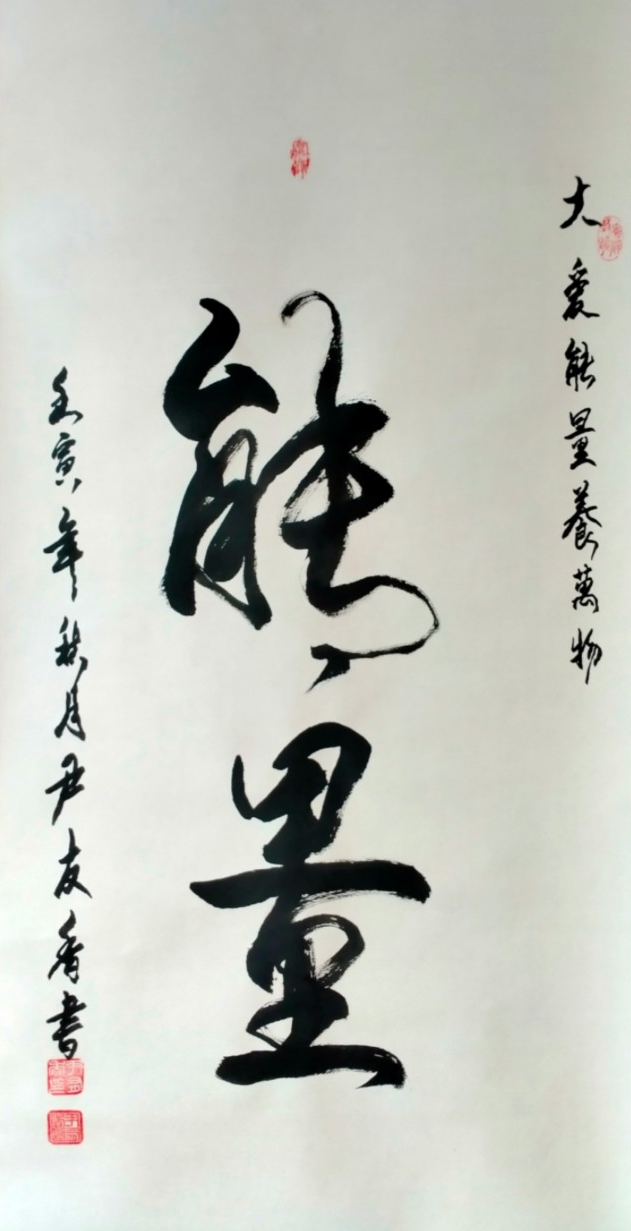 大愛能量養萬物
能量
壬寅年秋月尹友香書